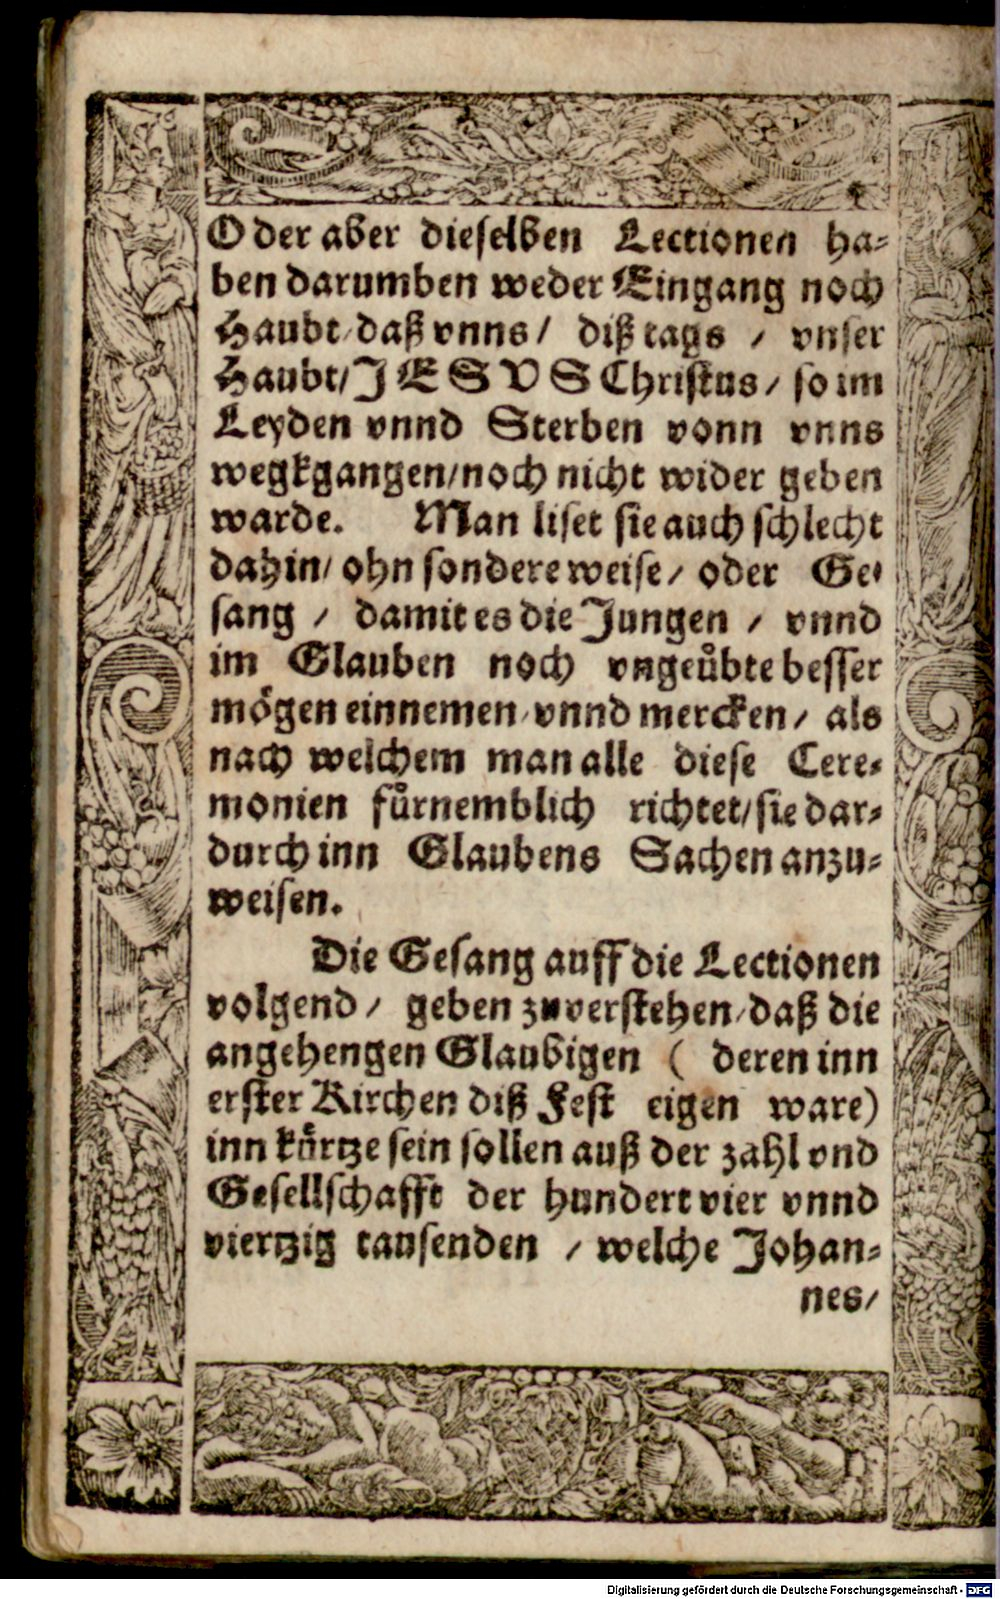 Oder aber dieselben Lectionen ha-
ben darumben weder Eingang noch
Haubt/daß vnns/ diß tags / vnser
Haubt/JESVS Christus/ so im
Leyden vnnd Sterben vonn vnns
wegkgangen/noch nicht wider geben
warde. Man liset sie auch schlecht
dahin/ ohn sondere weise/ oder Ge-
sang / damit es die Jungen / vnnd
im Glauben noch vngeůbte besser
mögen einnemen/vnnd mercken/ als
nach welchem man alle diese Cere-
monien fůrnemblich richtet/sie dar-
durch inn Glaubens Sachen anzu-
weisen.
Die Gesang auff die Lectionen
volgend/ geben zuverstehen/daß die
angehengen Glaubigen ( deren inn
erster Kirchen diß Fest eigen ware)
inn kůrtze sein sollen auß der zahl vnd
Gesellschafft der hundert vier vnnd
viertzig tausenden / welche Johan-
nes/
Digitalisierung gefördert durch die Deutsche Forschungsgemeinschaft - DFG